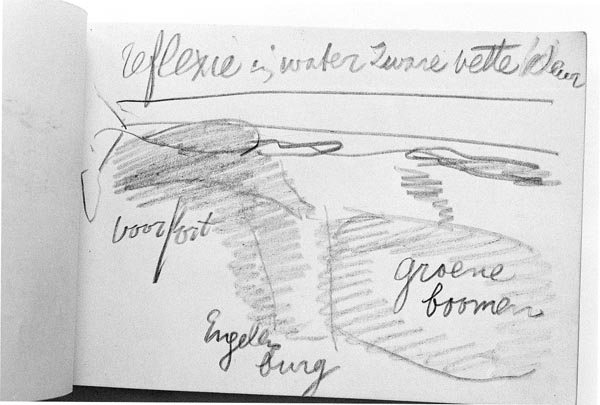 reflexie in water zware vette kleur
voorfort
groene
boomen
Engelen
burg